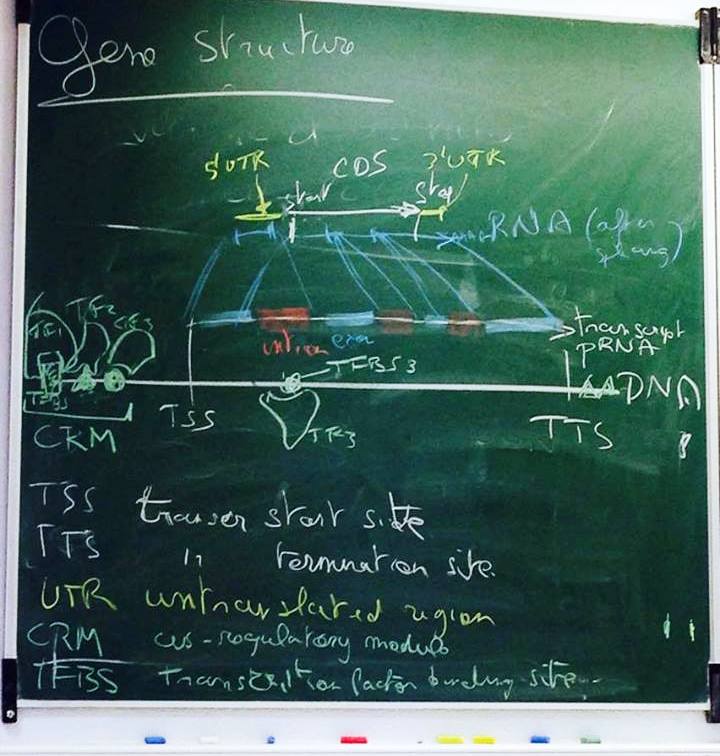 Gene structure
5'UTR CDS 3'UTR
start stop
RNA (after
splicing)
intron exon
transcript
pRNA
TF2
TFBS3
DNA
TFBS
TSS TF3 TTS
CRM
TSS transcr start site
TTS " termination site.
UTR untranslated region
CRM cis-regulatory module
TFBS transcription factor binding site